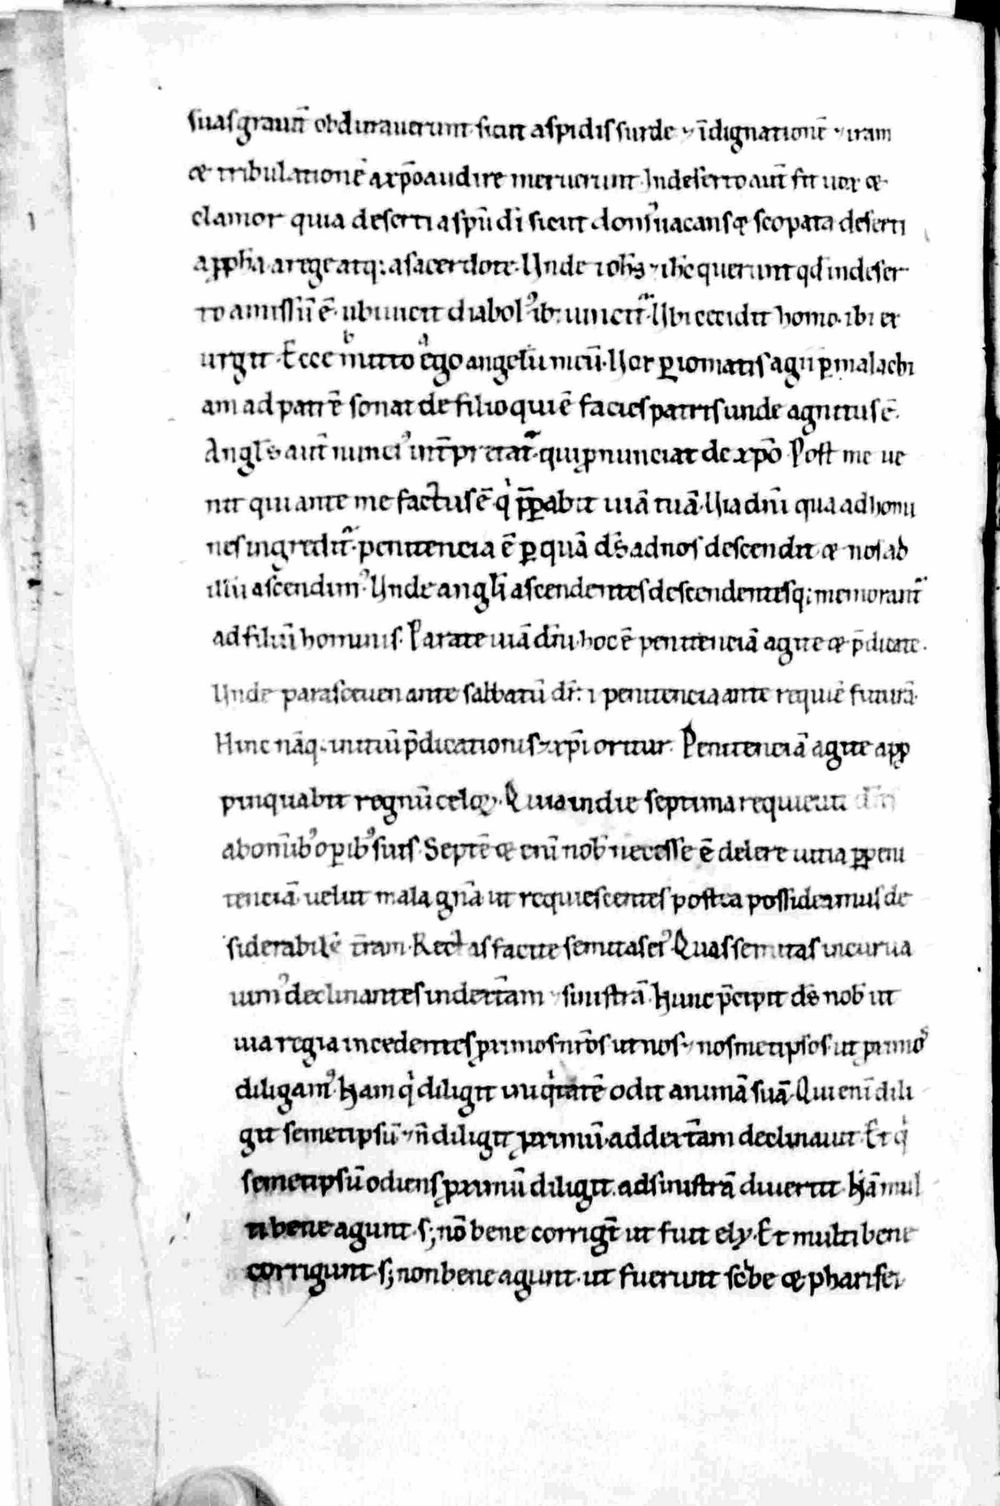 suas grauit̄ obdurauerunt. sicut aspidis surde ⁊ īdignationē ⁊ iram
& tribulationē a xp̄o audire meruerunt. In deserto aut̄ fit uox &
clamor quia deserti a sp̄u dī sicut dom᷒ uacans & scopata deserti
a ꝓph̄a. a rege atq; a sacerdote. Unde ioh̄s ⁊ ih̄c querunt qd̄ in deser
to amissū ē. ubi uicit diabol᷒ ibi uincit᷑. Ubi cecidit homo. ibi er
urgit. Ecce mitto ego angelū meū. Uox ꝑ iomatis agii ꝑ malachi
am ad patrē sonat de filio qui ē facies patris unde agnitus ē.
Angl̄s aut̄ nunci᷒ int̄pretat᷑. qui ꝓnunciat de xp̄o. Post me ue
nit qui ante me factus ē. qͥ p̄ꝑabit uiā tuā. Uia dn̄i qua ad homi
nes ingredit᷑. penitencia ē ꝑ quā ds̄ ad nos descendit & nos ad
illū ascendim᷒. Unde angl̄i ascendentes descendentesq; memorant᷑
ad filiū hominis. Parate uiā dn̄i. hoc ē penitenciā agite & p̄dicate.
Unde parasceuen ante sabbatū dr̄. i penitencia ante requiē futurā.
Hinc nāq; initiū p̄dicationis xp̄i oritur. Penitenciā agite app
pinquabit regnū celoꝝ. Quia in die septima requieuit
ab omīb᷒ oꝑib᷒ suis. Septē & enī nob̄ necesse ē delere uitia ꝑ peni
tenciā. uelut mala gn̄a ut requiescentes postea possideamus de
siderabilē t̄ram. Rectas facite semitas ei᷒. Quas semitas incurua
uim᷒ declinantes in dext̄am ⁊ sinistrā. Hunc p̄cipit ds̄ nob̄ ut
uia regia incedentes ꝓximos nr̄os ut nos ⁊ nosmetipsos ut ꝓximos
diligam᷒. Nam qͥ diligit iniqͥtatē odit animā suā. Qui enī dili
git semetipsū ⁊ n̄ diligit ꝓximū. ad dext̄am declinauit. Et qͥ
semetipsū odiens ꝓximū diligit. ad sinistrā diuertit. Nā mul
ti bene agunt. s; nō bene corrigt̄ ut fuit ely. Et multi bene
corrigunt. s; non bene agunt. ut fuerunt scͥbe & pharisei